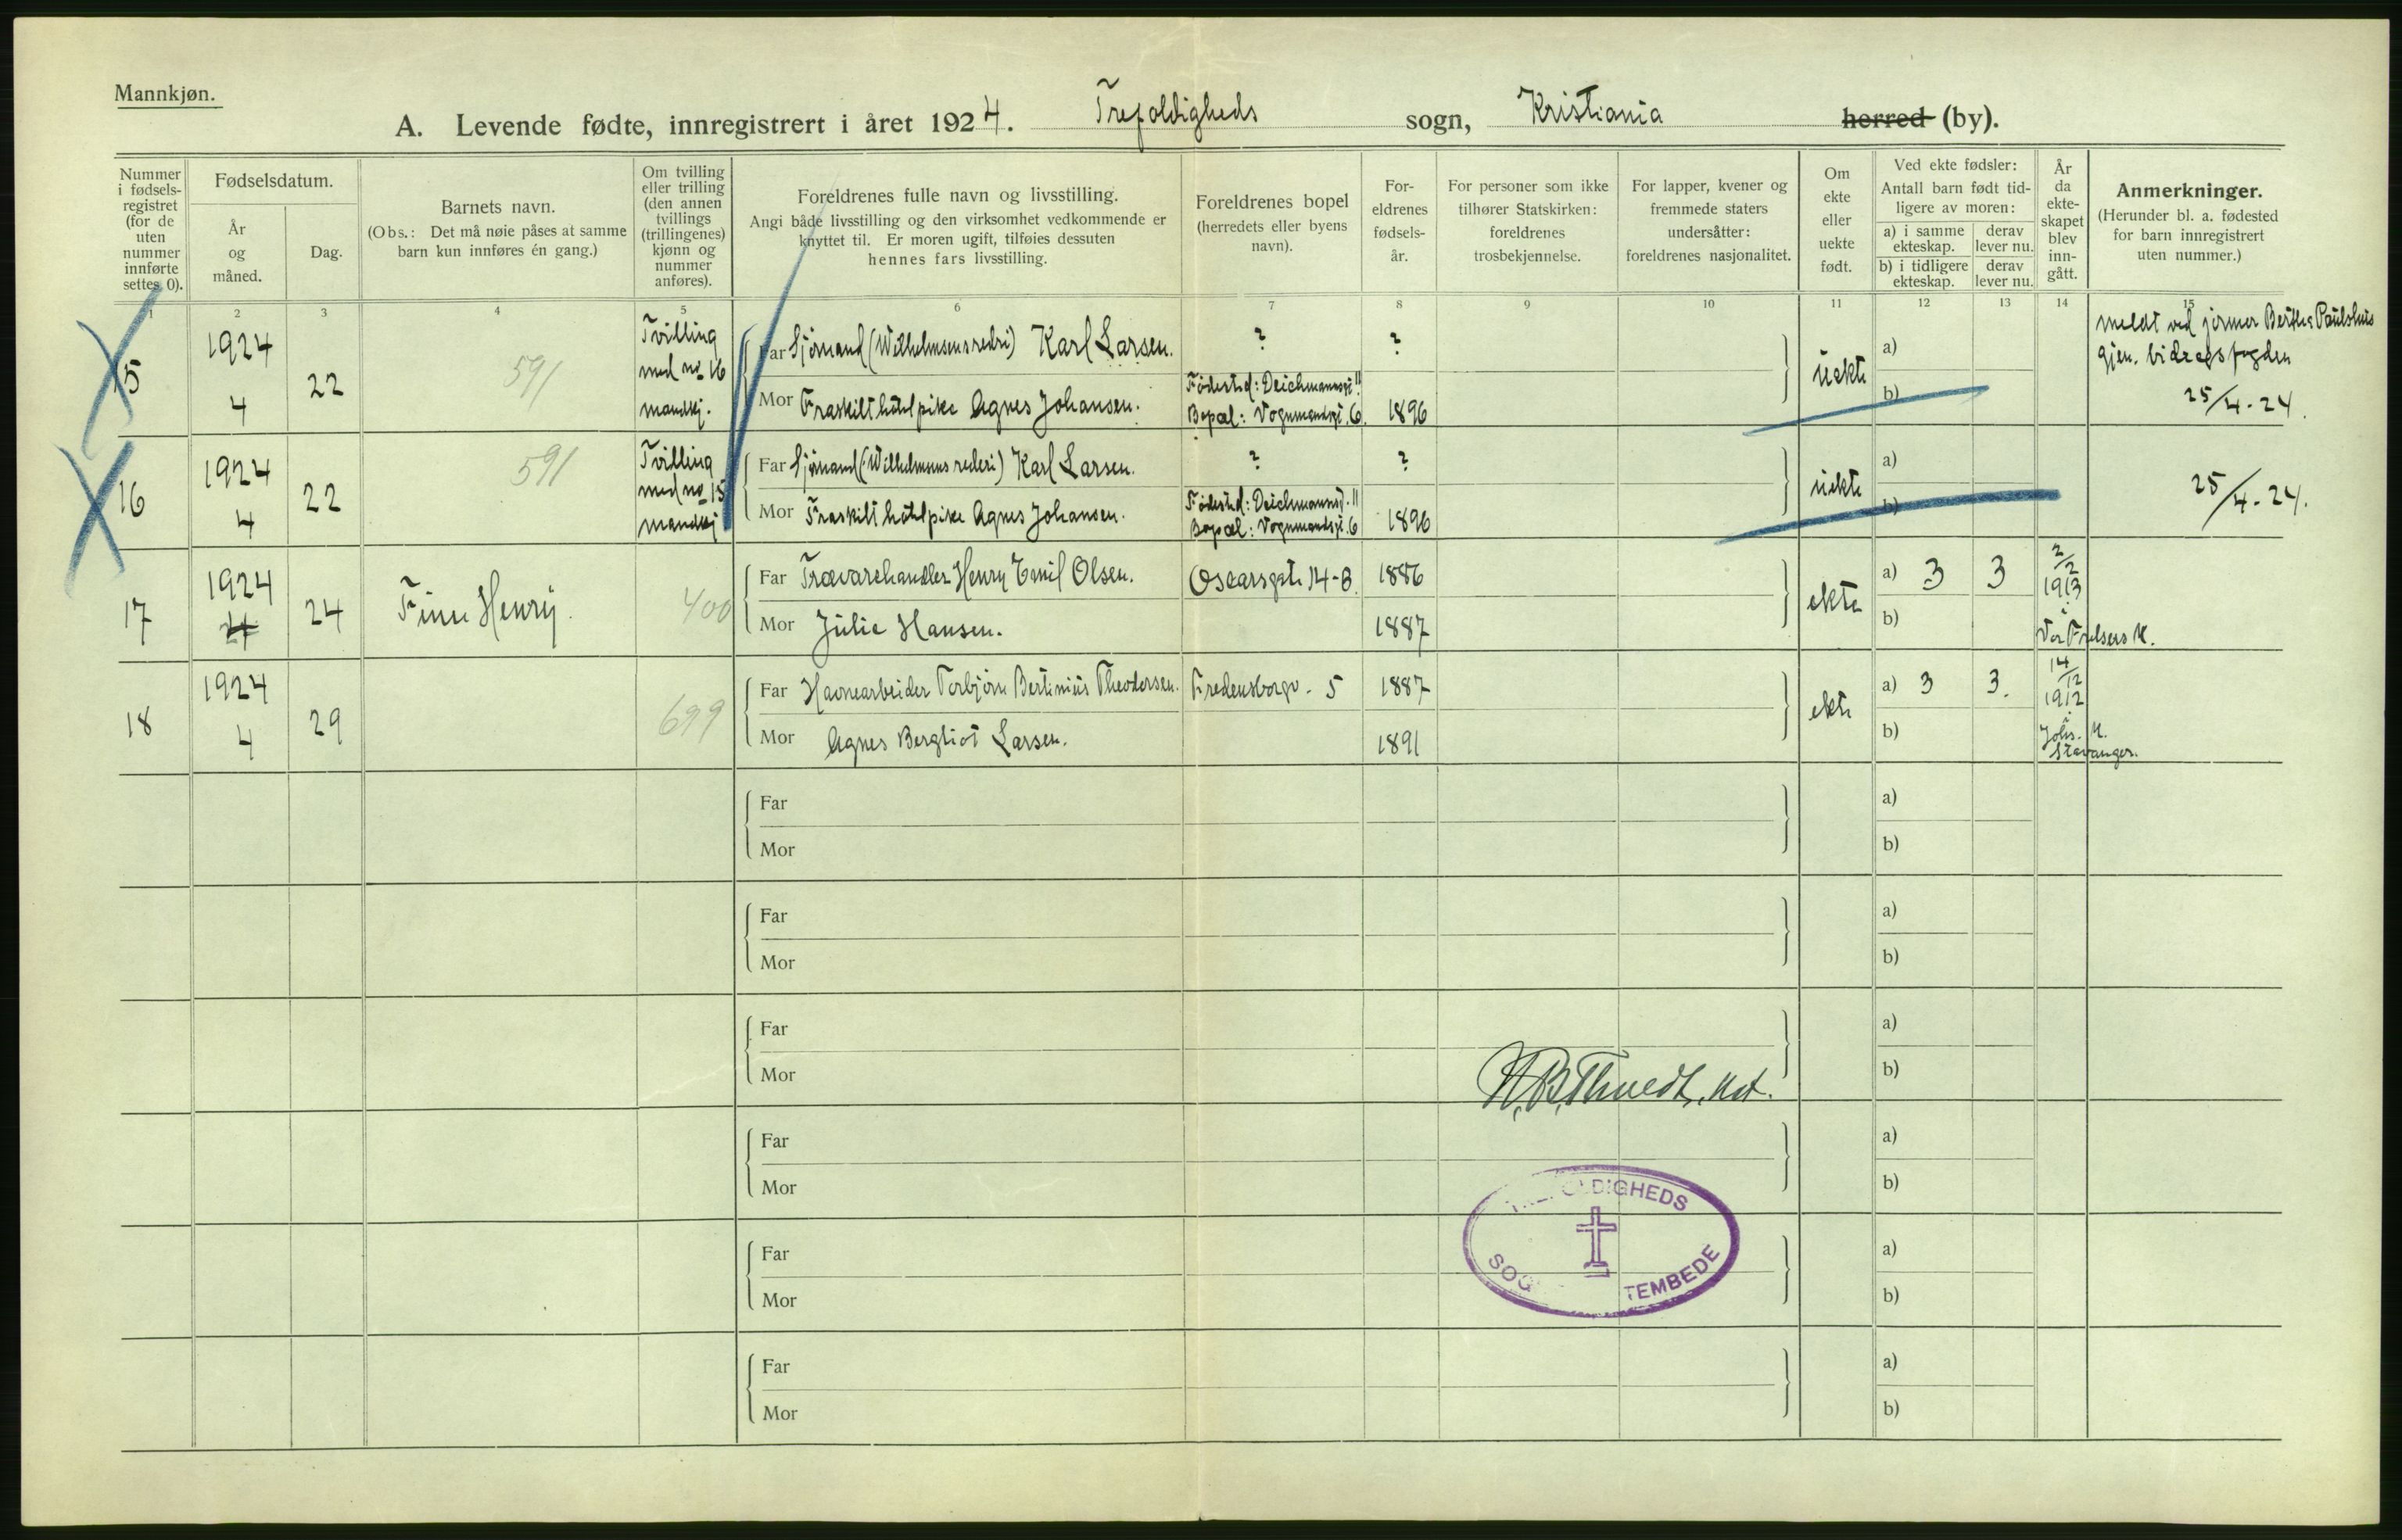 Mannkjøn.
A. Levende fødte, innregistrert i året 1924. Trefoldigheds sogn, Kristiania herred (by).
Nummer i fødsels-registret (for de uten nummer innførte settes 0).
Fødselsdatum.
År og måned.
Dag.
Barnets navn.
(Obs.: Det må nøie påses at samme barn kun innføres én gang.)
Om tvilling eller trilling (den annen tvillings (trillingenes) kjønn og nummer anføres).
Foreldrenes fulle navn og livsstilling.
Angi både livsstilling og den virksomhet vedkommende er knyttet til. Er moren ugift, tilføies dessuten hennes fars livsstilling.
Foreldrenes bopel (herredets eller byens navn).
For-eldrenes fødsels-år.
For personer som ikke tilhører Statskirken: foreldrenes trosbekjennelse.
For lapper, kvener og fremmede staters undersåtter: foreldrenes nasjonalitet.
Om ekte eller uekte født.
Ved ekte fødsler:
Antall barn født tid-ligere av moren:
a) i samme ekteskap. derav lever nu.
b) i tidligere ekteskap. derav lever nu.
År da ekte-skapet blev inn-gått.
Anmerkninger.
(Herunder bl. a. fødested for barn innregistrert uten nummer.)
1 2 3 4 5 6 7 8 9 10 11 12 13 14 15
15 1924 4 22 591 Tvilling med no 16 mandkj.
Far Sjömand (Wilhelmsens rederi) Karl Larsen. ? ?
Mor Fraskilt hotelpike Agnes Johansen. Födested: Deichmannsgt 11 Bopæl: Vognmandsgt. 6 1896
uekte a) b)
meldt ved jormor
gjen. bidragsfogden
25/4-24.
16 1924 4 22 591 Tvilling med no 15 mandkj
Far Sjömand (Wilhelmsens rederi) Karl Larsen. ? ?
Mor Fraskilt hotelpike Agnes Johansen. Födested: Deichmannsgt. 11 Bopæl: Vognmandsgt. 6 1896
uekte a) b)
25/4-24.
17 1924 4 24 Finn Henry. 400
Far Trævarehandler Henry Emil Olsen. Oscarsgate 14-B. 1886
Mor Julie Hansen. 1887
ekte a) 3 3 b)
2/2 1913 i Vor Frelsers K.
18 1924 4 29 699
Far Havnearbeider Torbjörn Bertinius Theodorsen. Fredensborgv. 5 1887
Mor Agnes Bergliot Larsen. 1891
ekte a) 3 3. b)
14/12 1912 i Johs. K. Stavanger.
Far a)
Mor b)
Far a)
Mor b)
Far a)
Mor b)
Far a)
Mor b)
Far a)
Mor b)
Far a)
Mor b)
OLDIGHEDS
SOG TEMBEDE